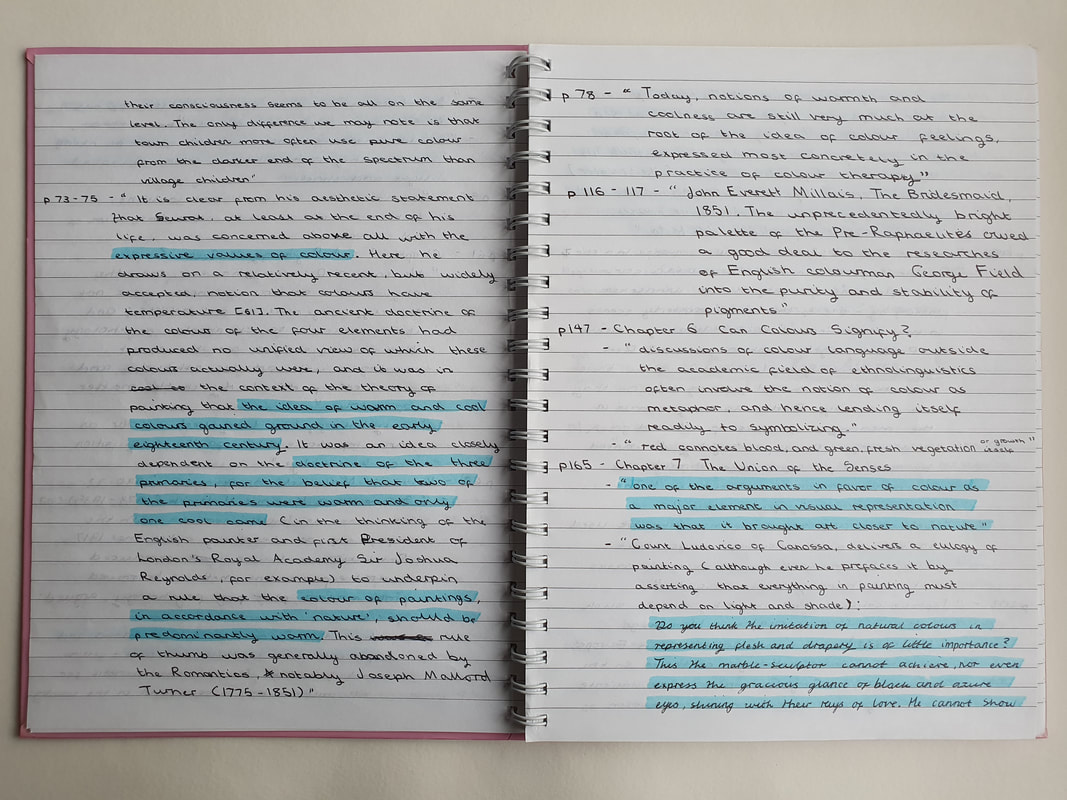 their consciousness seems to be all on the same
level. The only difference we may note is that
town children more often use pure colour
from the darker end of the spectrum than
village children"
p 73-75 - " It is clear from his aesthetic statement
that Seurat, at least at the end of his
life, was concerned above all with the
expressive values of colour. Here he
draws on a relatively recent, but widely
accepted, notion that colours have
temperature [61]. The ancient doctrine of
the colours of the four elements had
produced no unified view of which these
colours actually were, and it was in
the context of the theory of
painting that the idea of warm and cool
colours gained ground in the early
eighteenth century. It was an idea closely
dependent on the doctrine of the three
primaries, for the belief that two of
the primaries were warm and only
one cool came (in the thinking of the
English painter and first President of
London's Royal Academy Sir Joshua
Reynolds, for example) to underpin
a rule that the colour of paintings,
in accordance with 'nature', should be
predominantly warm. This rule
of thumb was generally abandoned by
the Romantics, notably Joseph Mallord
Turner (1775-1851)"
p 78 - " Today, notions of warmth and
coolness are still very much at the
root of the idea of colour feelings,
expressed most concretely in the
practice of colour therapy"
p 116 - 117 - " John Everett Millais, The Bridesmaid,
1851. The unprecedentedly bright
palette of the Pre-Raphaelites owed
a good deal to the researches
of English colourman George Field
into the purity and stability of
pigments"
p147 - Chapter 6 Can Colours Signify?
- " discussions of colour language outside
the academic field of ethnolinguistics
often involve the notion of colour as
metaphor, and hence lending itself
readily to symbolizing."
- " red connotes blood, and green, fresh vegetation or growth itself "
p165 - Chapter 7 The Union of the Senses
- "one of the arguments in favor of colour as
a major element in visual representation
was that is brought art closer to nature"
- "Count Ludovico of Canossa, delivers a eulogy of
painting (although even he prefaces it by
asserting that everything in painting must
depend on light and shade):
Do you think the imitation of natural colours in
representing flesh and drapery is of little importance?
This the marble-sculptor cannot achieve, nor even
express the gracious glance of black and azure
eyes, shining with their rays of love. He cannot show